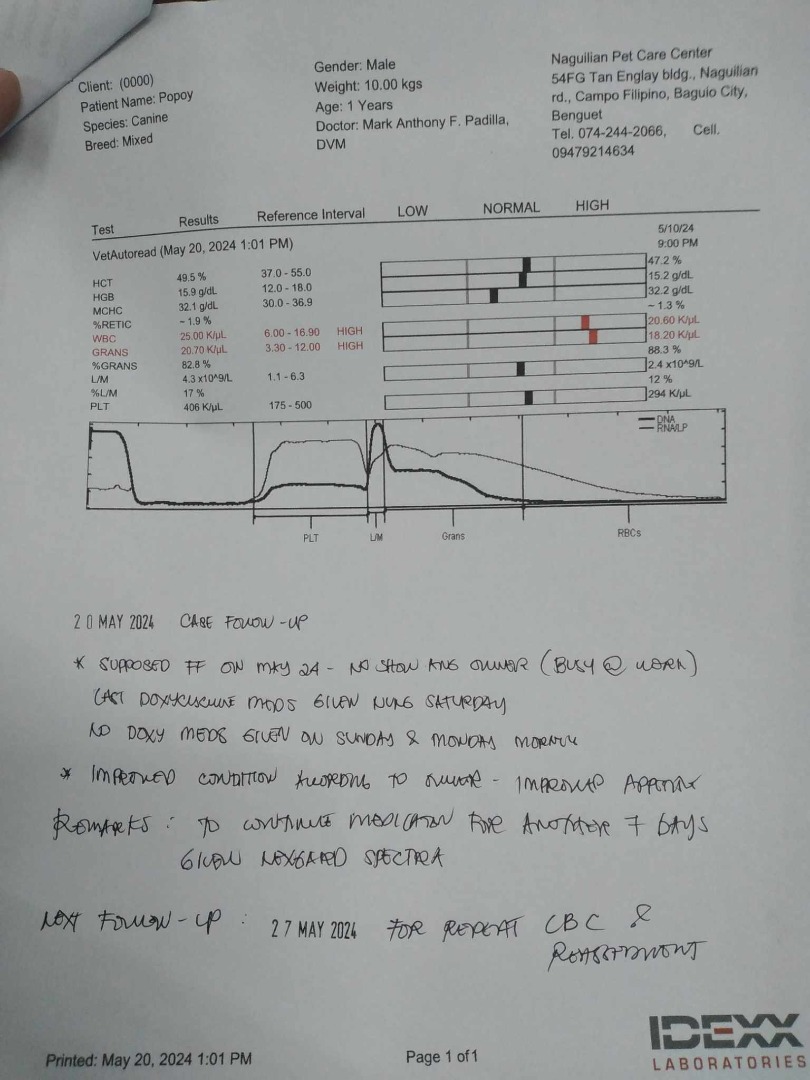 Client: (0000)
Patient Name: Popoy
Species: Canine
Breed: Mixed
Gender: Male
Weight: 10.00 kgs
Age: 1 Years
Doctor: Mark Anthony F. Padilla,
DVM
Naguilian Pet Care Center
54FG Tan Englay bldg., Naguilian
rd., Campo Filipino, Baguio City,
Benguet
Tel. 074-244-2066, Cell.
09479214634
Test Results Reference Interval LOW NORMAL HIGH
VetAutoread (May 20, 2024 1:01 PM) 5/10/24
9:00 PM
HCT 49.5 % 37.0 - 55.0 47.2 %
HGB 15.9 g/dL 12.0 - 18.0 15.2 g/dL
MCHC 32.1 g/dL 30.0 - 36.9 32.2 g/dL
%RETIC ~ 1.9 % ~ 1.3 %
WBC 25.00 K/µL 6.00 - 16.90 HIGH 20.60 K/µL
GRANS 20.70 K/µL 3.30 - 12.00 HIGH 18.20 K/µL
%GRANS 82.8 % 88.3 %
L/M 4.3 x10^9/L 1.1 - 6.3 2.4 x10^9/L
%L/M 17 % 12 %
PLT 406 K/µL 175 - 500 294 K/µL
DNA
RNA/LP
PLT L/M Grans RBCs
20 MAY 2024 CASE FOLLOW-UP
* SUPPOSED FF ON MAY 24 - NO SHOW ANG OWNER (BUSY @ WORK)
LAST DOXYCYCLINE MEDS GIVEN NUNG SATURDAY
NO DOXY MEDS GIVEN ON SUNDAY & MONDAY MORNING
* IMPROVED CONDITION ACCORDING TO OWNER - IMPROVED APPETITE
REMARKS : TO CONTINUE MEDICATION FOR ANOTHER 7 DAYS
GIVEN NEXGARD SPECTRA
NEXT FOLLOW-UP : 27 MAY 2024 FOR REPEAT CBC &
REASSESSMENT
IDEXX
LABORATORIES
Printed: May 20, 2024 1:01 PM Page 1 of 1